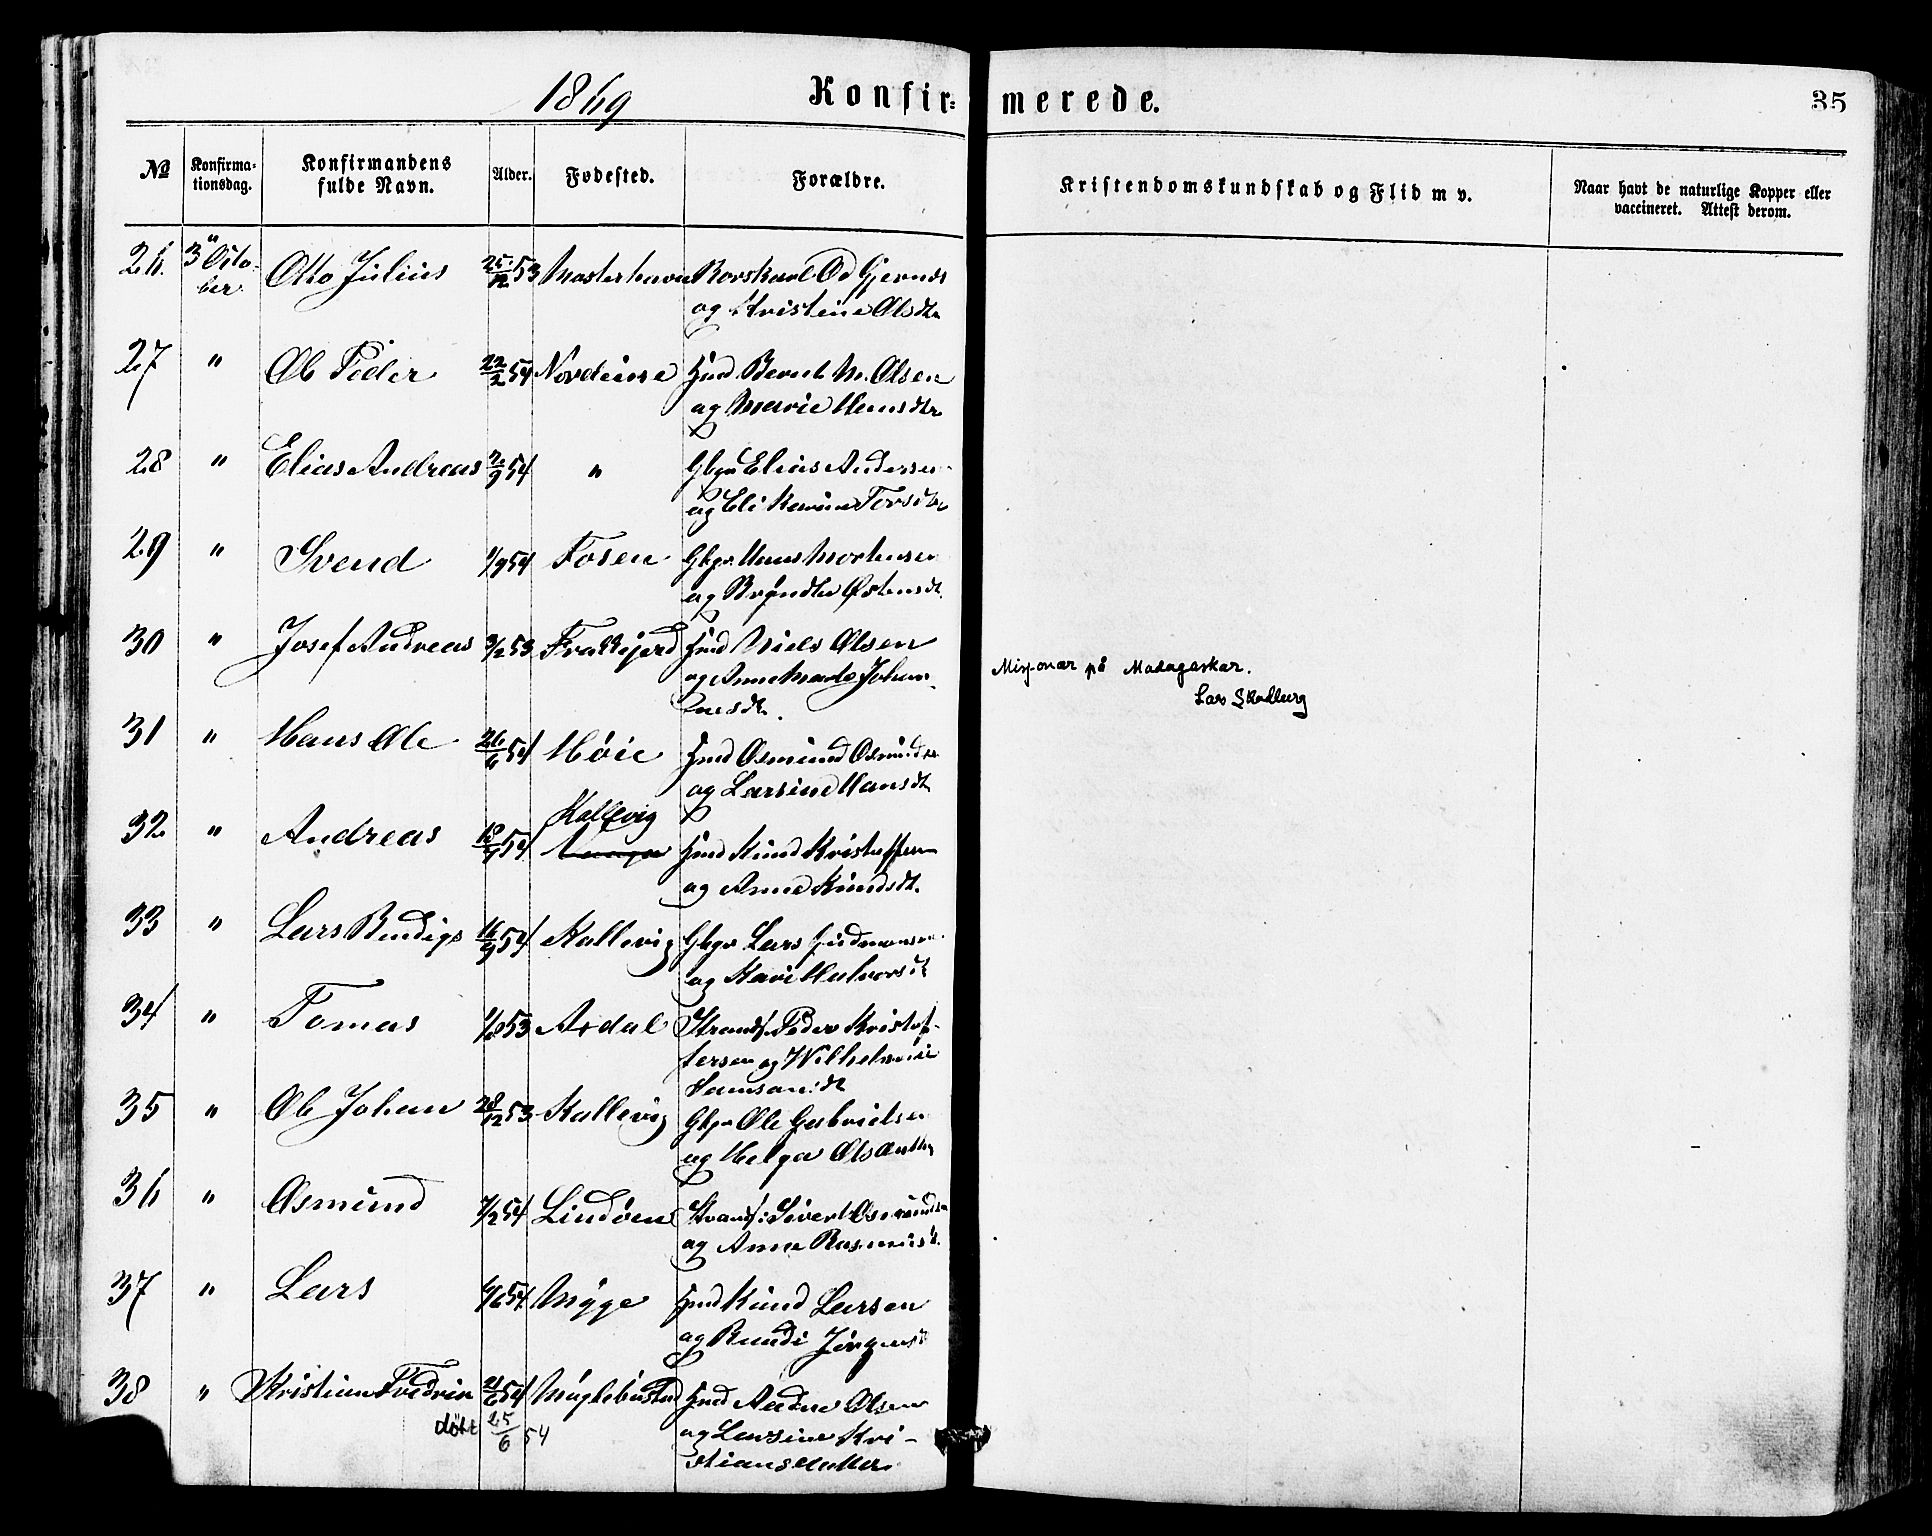 1869 Konfir- merede. 35
№ Konfirma-tionsdag. Konfirmandens fulde Navn. Alder. Fødested. Forældre. Kristendomskundskab og Flid m v. Naar havt de naturlige Kopper eller vaccineret. Attest derom.
26. 3 Octo- Otto Julius 25/12 53 Mosterhavn
ber og Kristine Olsdtr
27 " Ole Peder 22/2 54 Fmd. Bernt M. Olsen
og Marie Hansdtr
28 " Elias Andreas 54 " Gbgr Elias Andersen
og Eli Karine Torsdtr
29 " Svend 1/9 54 Fosen Gbgr Hans Mortensen
og Østensdt.
30 " Josef Andreas 3/12 53 Frakkegjerd Fmd Niels Olsen
og Anne Marta Johan-
nesdt.
Misjonær på Madagaskar.
Lars Skadberg
31 " Hans Ole 26/6 54 Høie Fmd Osmund Osmunds
og Larsine Hansdt
Kallevig
32 " Andreas 54 Fmd Knud Kristoffersen
og Anne Knudsdt.
33 " Lars Bendigs 16/9 54 Kallevig Gbgr Lars Gudmonsen
og Kari Halvorsdt
34 " Tomas 53 Ardal Strands. Peder Kristof-
fersen og Wilhelmine
Samsonsdt
35 " Ole Johan 28/12 53 Kallevig Gbgr Ole Gabrielsen
og Helga Olsdatter
36 " Osmund 7/2 54 Lindøen Strands: Sivert Osmundsen
og Anna Rasmusd.
37 " Lars 54 Myge Fmd Knud Larsen
og Jørgensd
38 " Kristian Fredrin 21/6 54 Myglebustad Fmd Andne Olsen
døbt 25/6 54 og Larsine Kri-
stiansdatter